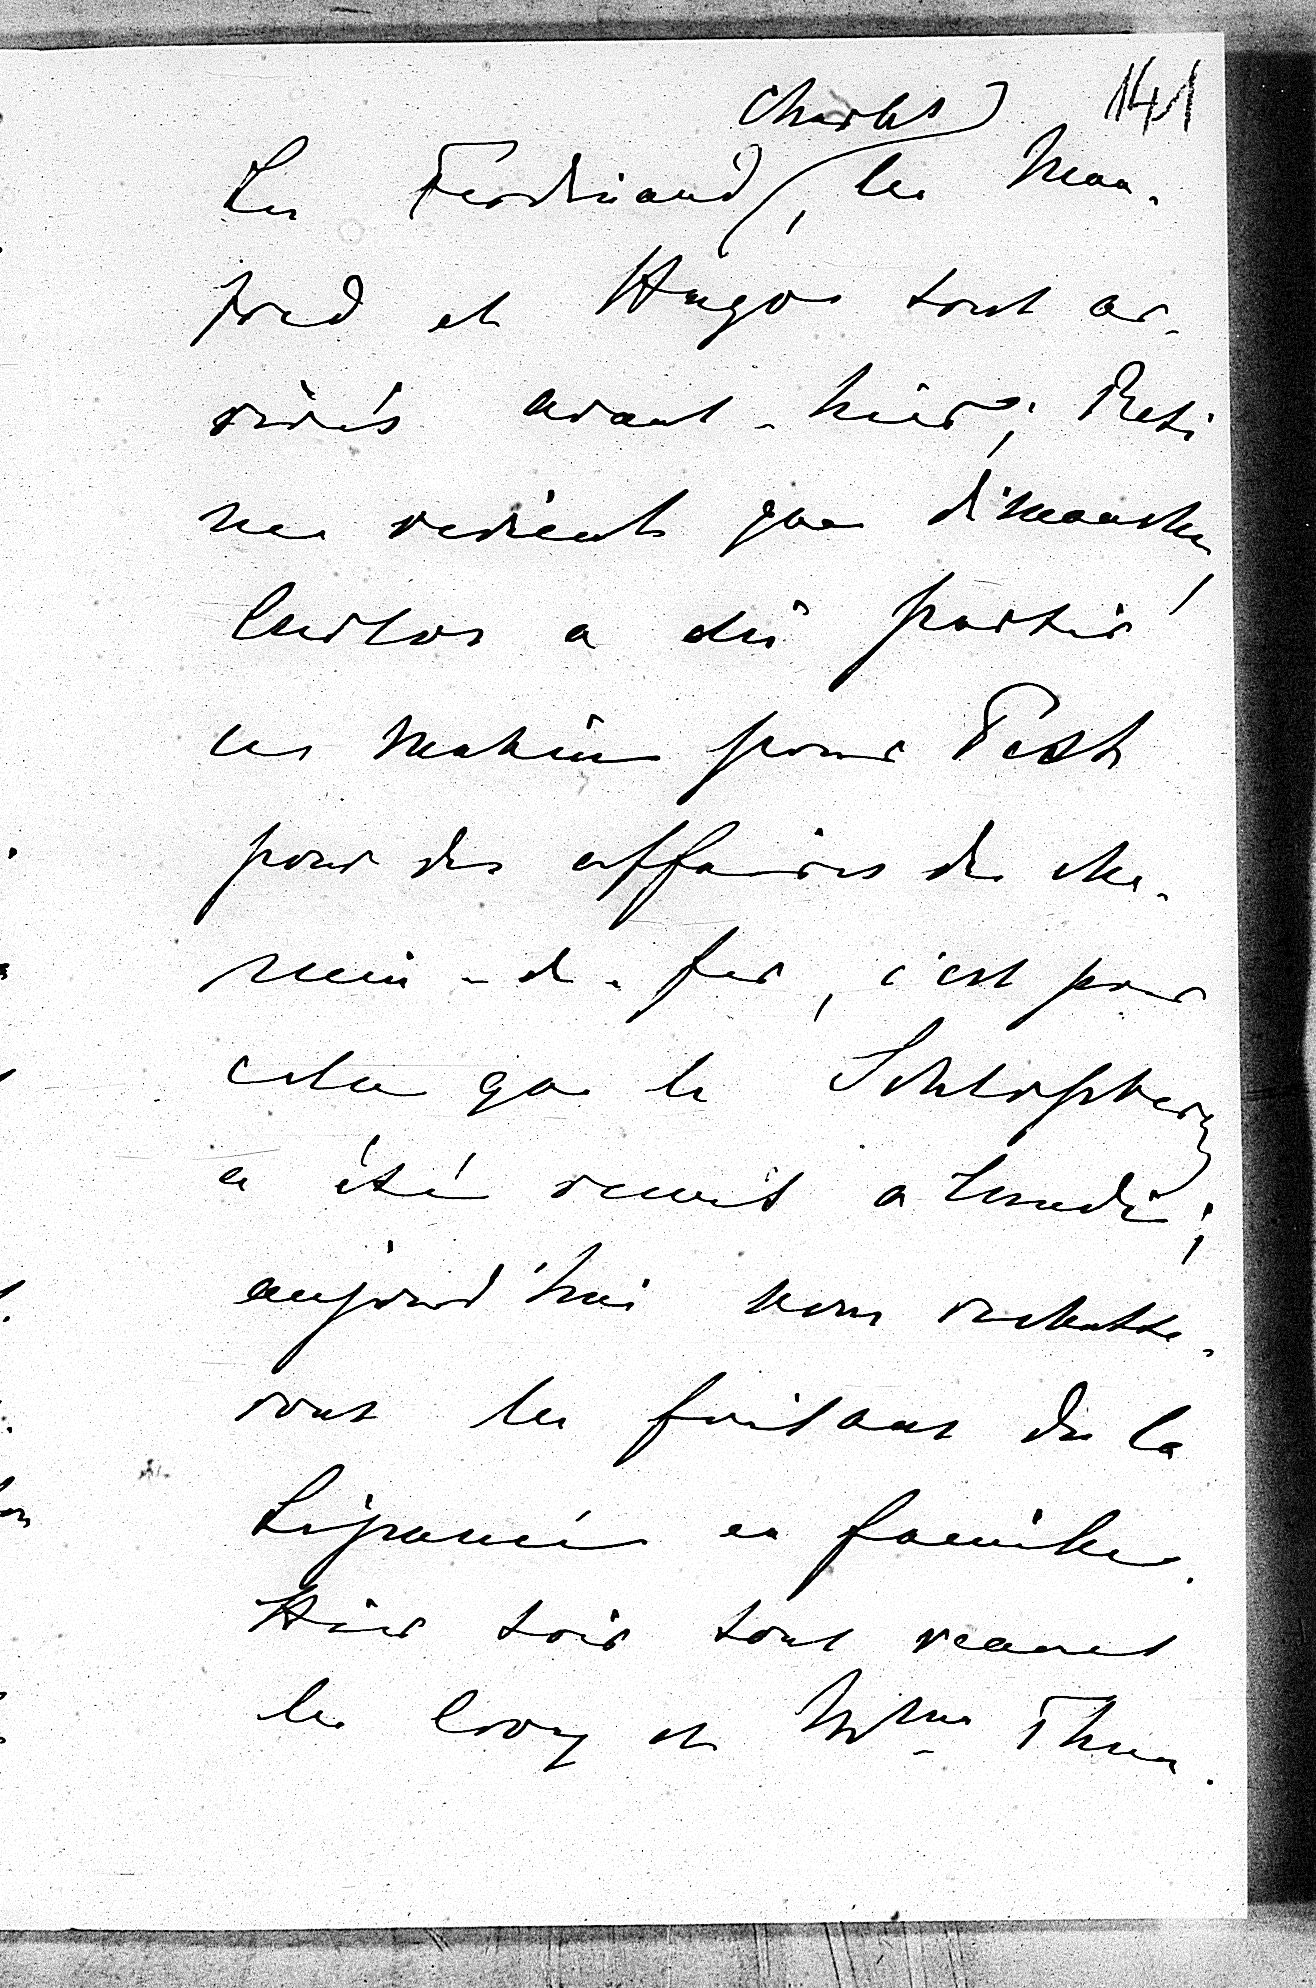 141
Charles
Les Ferdinand, les Man-
fred et Hugos sont ar-
rivés avant-hier; Resi
ne revient que dimanche,
Carlos a dû partir
ce matin pour Pest
pour des affaires de che-
min-de-fer, c'est pour
cela que le Schlossberg
a été remis a lundi;
aujourd'hui nous rachette-
rons les faisans de la
en famille.
Hier soir sont venus
les Croy et Mme Thun.